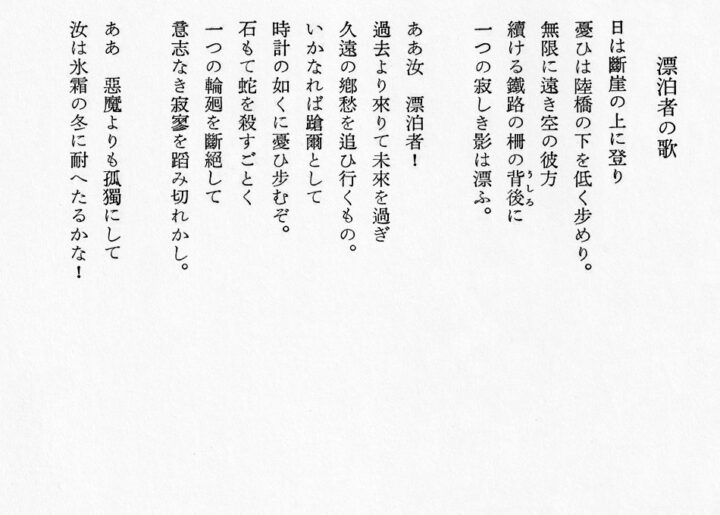 漂泊者の歌
日は斷崖の上に登り
憂ひは陸橋の下を低く歩めり。
無限に遠き空の彼方
續ける鐵路の柵の背後に
うしろ
一つの寂しき影は漂ふ。
ああ汝　漂泊者！
過去より來りて未來を過ぎ
久遠の鄕愁を追ひ行くもの。
いかなれば蹌爾として
時計の如くに憂ひ歩むぞ。
石もて蛇を殺すごとく
一つの輪廻を斷絕して
意志なき寂寥を蹈み切れかし。
ああ　惡魔よりも孤獨にして
汝は氷霜の冬に耐へたるかな！